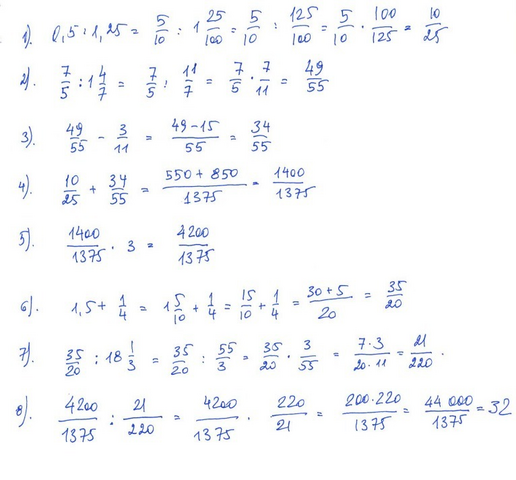 1). 0,5 : 1,25 = 5/10 : 1 25/100 = 5/10 : 125/100 = 5/10 · 100/125 = 10/25
2). 7/5 : 1 4/7 = 7/5 : 11/7 = 7/5 · 7/11 = 49/55
3). 49/55 - 3/11 = 49-15/55 = 34/55
4). 10/25 + 34/55 = 550 + 850/1375 = 1400/1375
5). 1400/1375 · 3 = 4200/1375
6). 1,5 + 1/4 = 1 5/10 + 1/4 = 15/10 + 1/4 = 30+5/20 = 35/20
7). 35/20 : 18 1/3 = 35/20 : 55/3 = 35/20 · 3/55 = 7·3/20·11 = 21/220.
8). 4200/1375 : 21/220 = 4200/1375 · 220/21 = 200·220/1375 = 44 000/1375 = 32